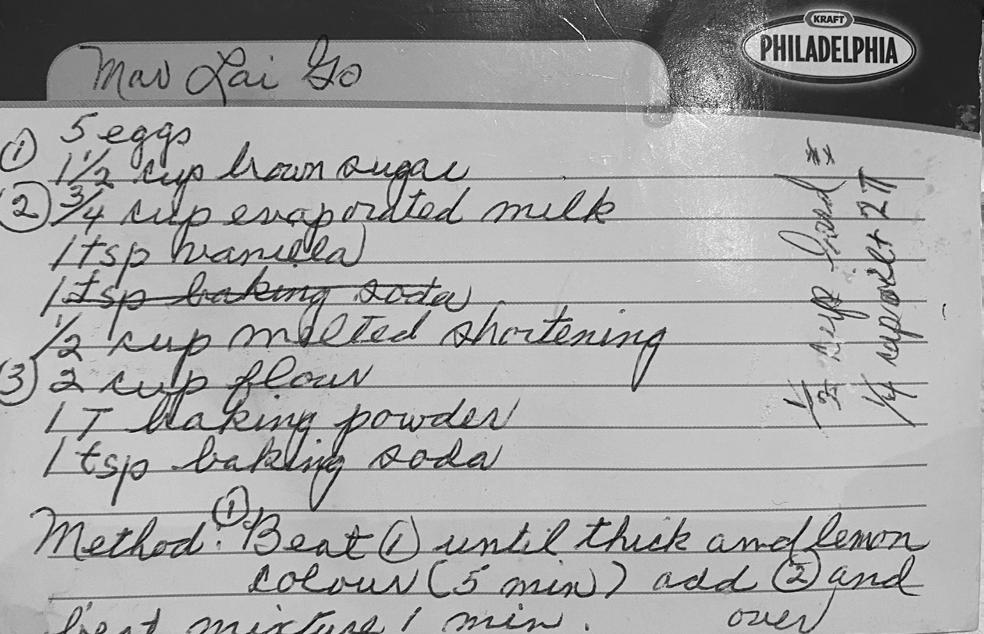 KRAFT
PHILADELPHIA
Mav Lai Go
① 5 eggs
1 1/2 cup brown sugar
② 3/4 cup evaporated milk
1 tsp vanilla
1 tsp baking soda
1/2 cup melted shortening
③ 2 cup flour
1 T baking powder
1 tsp baking soda
Method: ① Beat ① until thick and lemon
colour (5 min) add ② and
beat mixture 1 min. over
1/3 cup **
1/4 cup + 2T